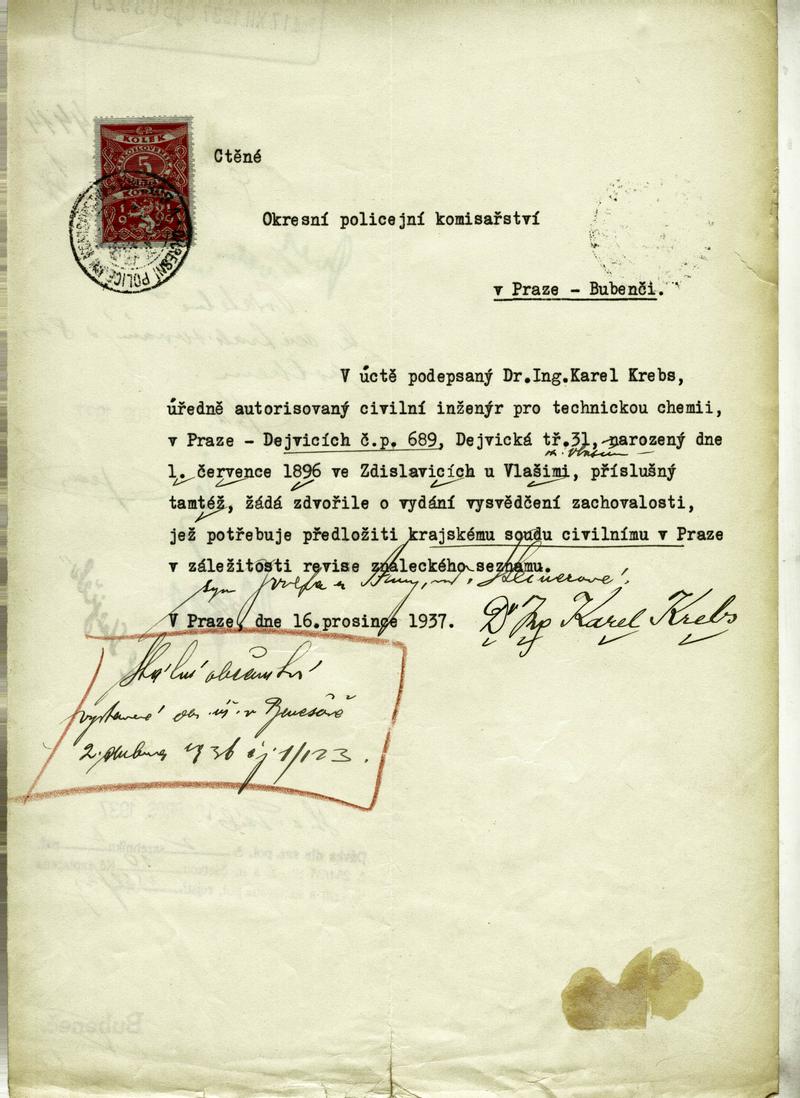 KOLEK
5
19
Ctěné
Okresní policejní komisařství
v Praze - Bubenči.
V úctě podepsaný Dr.Ing.Karel Krebs,
úředně autorisovaný civilní inženýr pro technickou chemii,
v Praze - Dejvicích č.p. 689, Dejvická tř.31, narozený dne
1. července 1896 ve Zdislavicích u Vlašimi, příslušný
tamtéž, žádá zdvořile o vydání vysvědčení zachovalosti,
jež potřebuje předložiti krajskému soudu civilnímu v Praze
v záležitosti revise znaleckého seznamu.
syn Josefa a Anny,
V Praze, dne 16.prosince 1937. Dr Ing Karel Krebs
Státní občanství
vystavené v Benešově
2. dubna 1936 čj 1/123.
Bubeneč